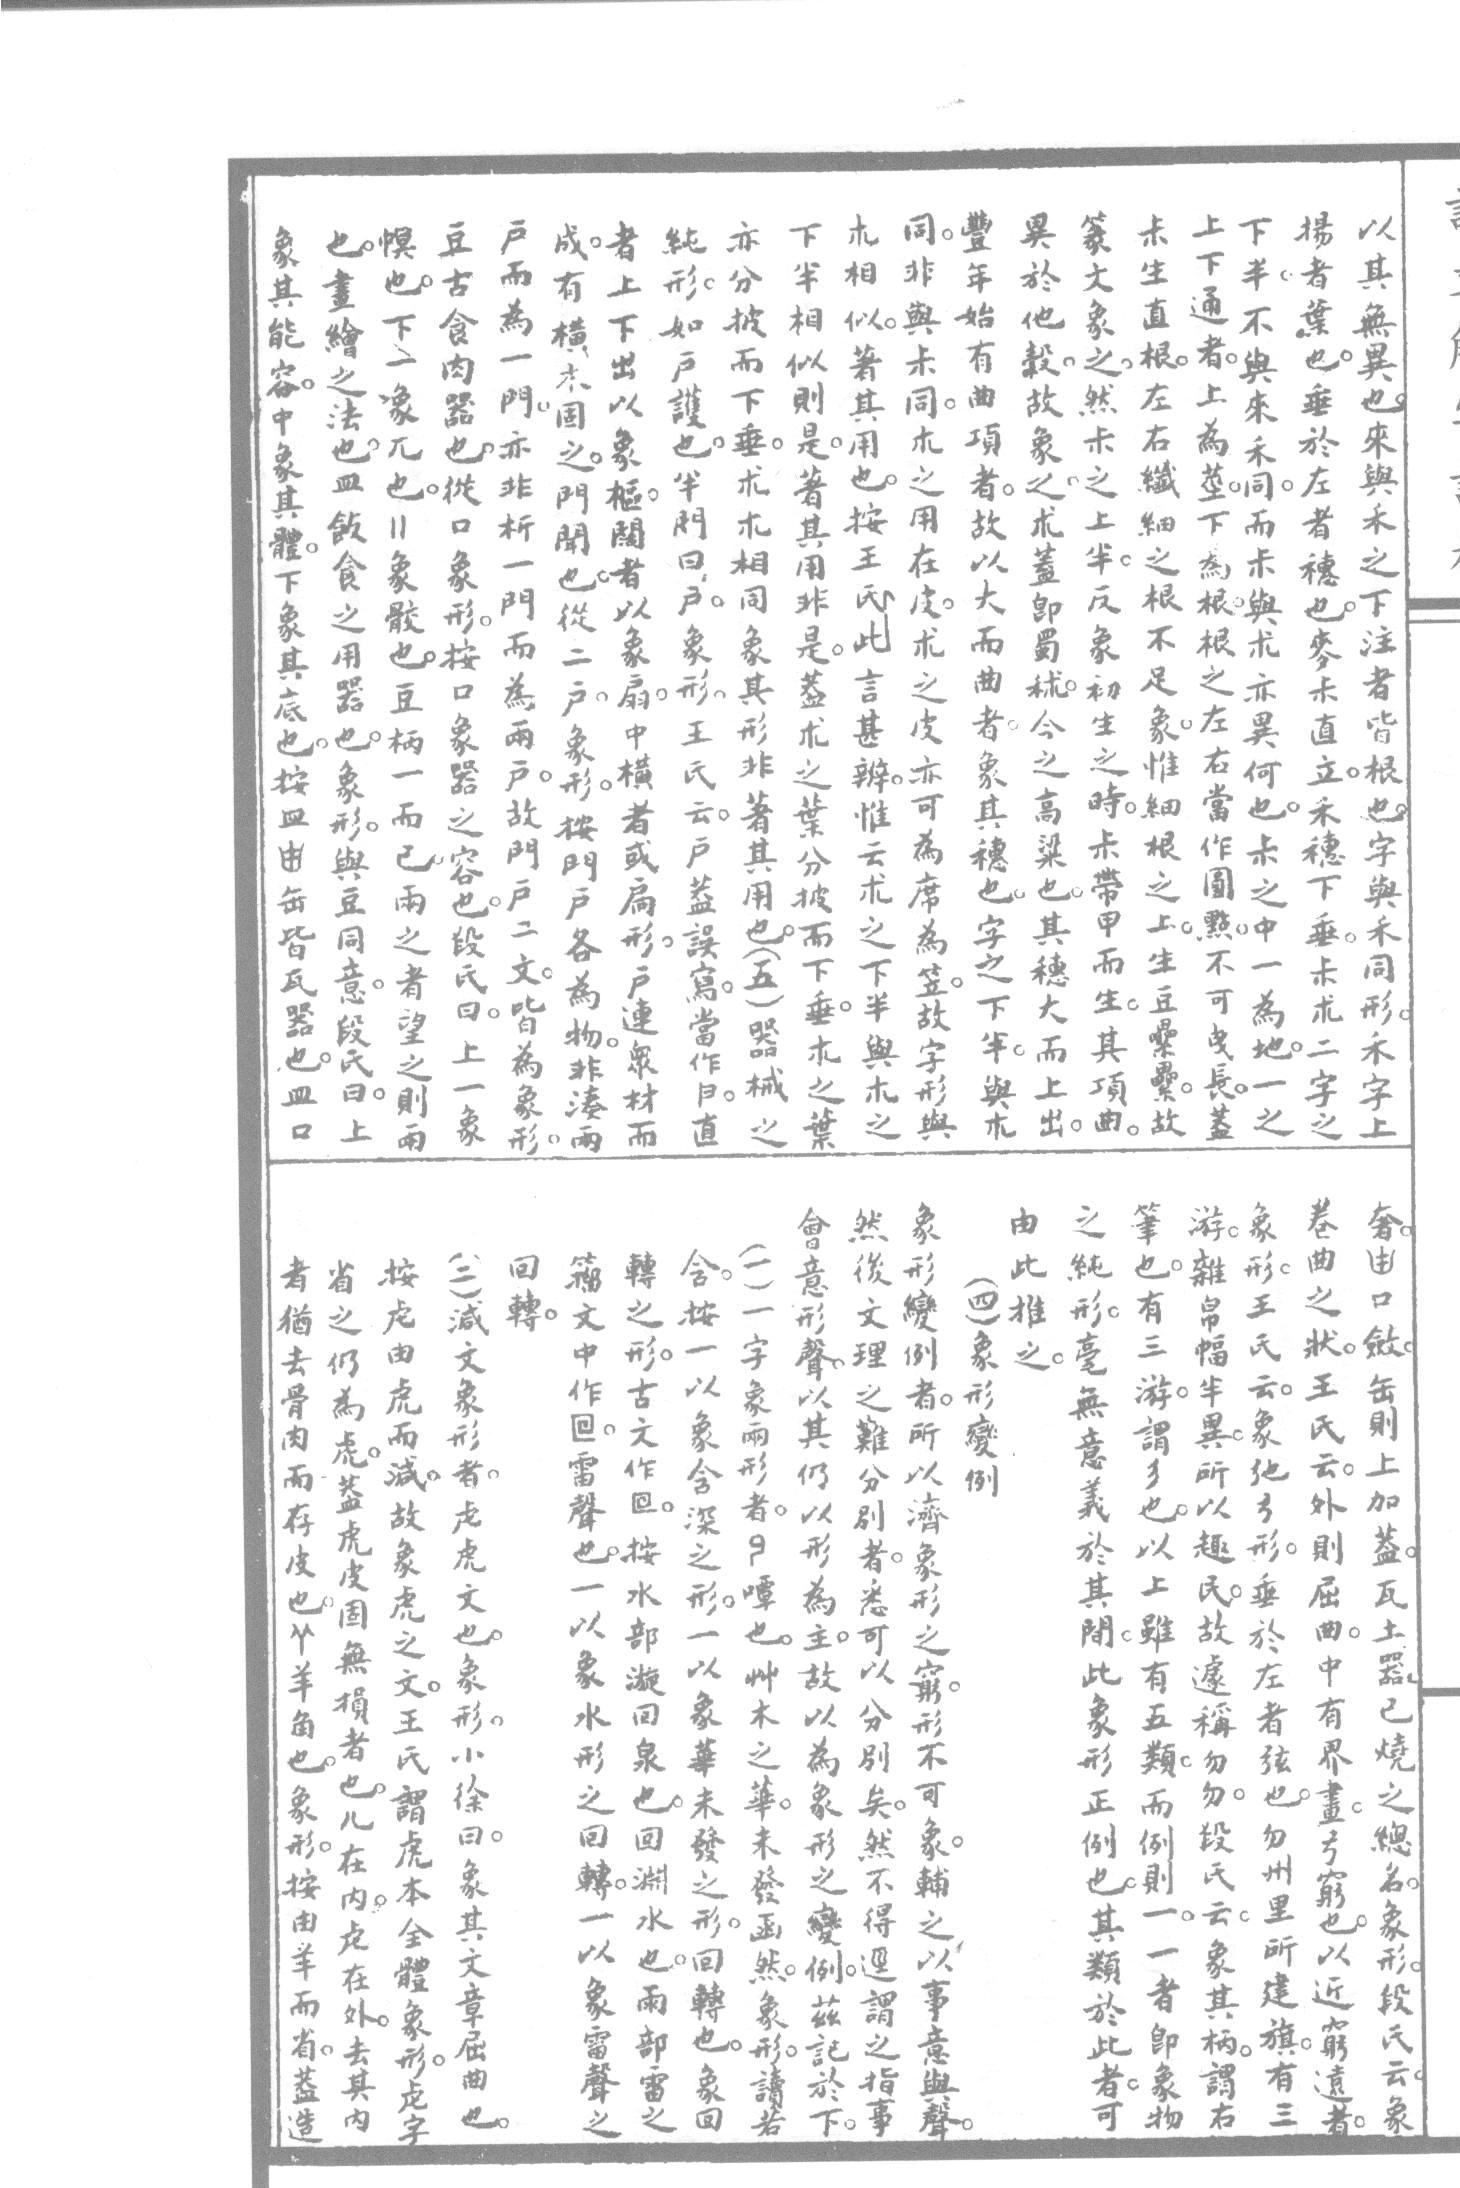 以其無異也。來與禾之下注者皆根也。字與禾同形。禾字上
揚者葉也。垂於左者穗也。麥朩直立。禾穗下垂。朩朮二字之
下半。不與來禾同。而朩與朮亦異何也。朩之中一為地。一之
上下通者。上為莖。下為根。根之左右當作圓點。不可曳長。蓋
朩生直根。左右纖細之根不足象。惟細根之上。生豆纍纍。故
篆文象之。然朩之上半。反象初生之時。朩帶甲而生。其項曲。
異於他穀。故象之。朮蓋卽蜀秫。今之高粱也。其穗大而上出。
豐年始有曲項者。故以大而曲者。象其穗也。字之下半。與朩
同。非與朩同。朩之用在皮。朮之皮亦可為席為笠。故字形與
朩相似。著其用也。按王氏此言甚辨。惟云朮之下半與朩之
下半相似則是。著其用非是。蓋朮之葉分披而下垂。朩之葉
亦分披而下垂。朮朩相同象其形非著其用也。(五)器械之
純形。如戶護也。半門曰戶。象形。王氏云。戶蓋誤寫。當作戶。直
者上下出以象樞。闊者以象扇。中橫者或扃形。戶連眾材而
成。有橫木固之。門聞也。從二戶。象形。按門戶各為物。非湊兩
戶而為一門。亦非析一門而為兩戶。故門戶二文。皆為象形。
豆古食肉器也。從口象形。按口象器之容也。段氏曰。上一象
幎也。下一象丌也。〢象骹也。豆柄一而已。兩之者望之則兩
也。畫繪之法也。皿飲食之用器也。象形。與豆同意。段氏曰。上
象其能容。中象其體。下象其底也。按皿甶缶皆瓦器也。皿口
奢。甶口斂。缶則上加蓋。瓦土器已燒之總名。象形。段氏云。象
卷曲之狀。王氏云。外則屈曲。中有界畫。弓窮也。以近窮遠者。
象形。王氏云。象弛弓形。垂於左者弦也。勿州里所建旗。有三
游。雜帛幅半異。所以趣民。故遽稱勿勿。段氏云。象其柄。謂右
筆也。有三游。謂彡也。以上雖有五類。而例則一。一者卽象物
之純形。毫無意義於其閒。此象形正例也。其類於此者。可
由此推之。
(四)象形變例
象形變例者。所以濟象形之窮。形不可象。輔之以事意與聲。
然後文理之難分別者。悉可以分別矣。然不得逕謂之指事
會意形聲。以其仍以形為主。故以為象形之變例。茲記於下。
(一)一字象兩形者。𢎘嘾也。艸木之華。未發函然。象形。讀若
含。按一以象含深之形。一以象華未發之形。回轉也。象回
轉之形。古文作囘。按水部漩回泉也。回淵水也。雨部雷之
籀文中作囘。雷聲也。一以象水形之回轉。一以象雷聲之
回轉。
(二)減文象形者。虍虎文也。象形。小徐曰。象其文章屈曲也。
按虍由虎而減。故象虎之文。王氏謂虎本全體象形。虍字
省之仍為虎。蓋虎皮固無損者也。儿在內。虍在外。去其內
者猶去骨肉而存皮也。𦫳羊角也。象形。按由羊而省。蓋造